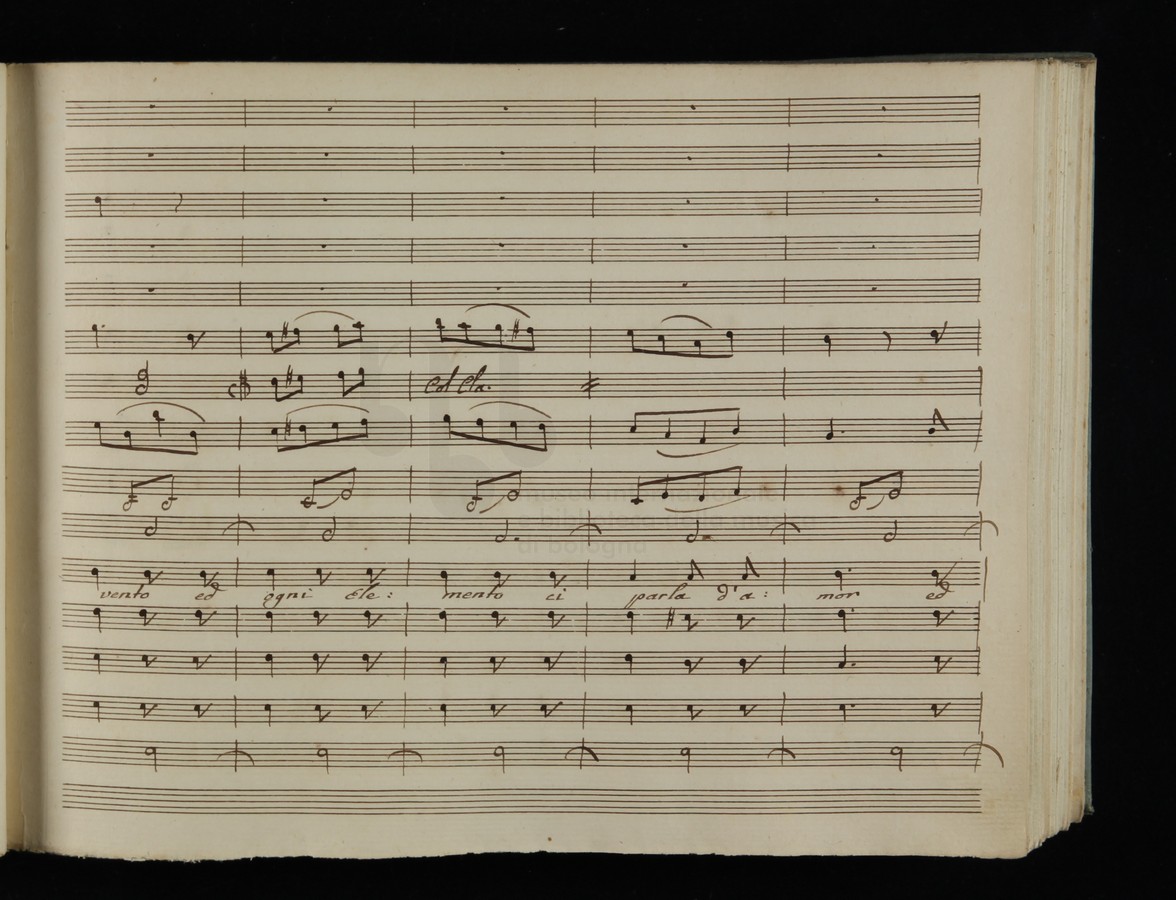 Col Cla.
vento ed ogni ele: mento ci parla d'a: mor ed
museo internazionale
e biblioteca della musica
di bologna